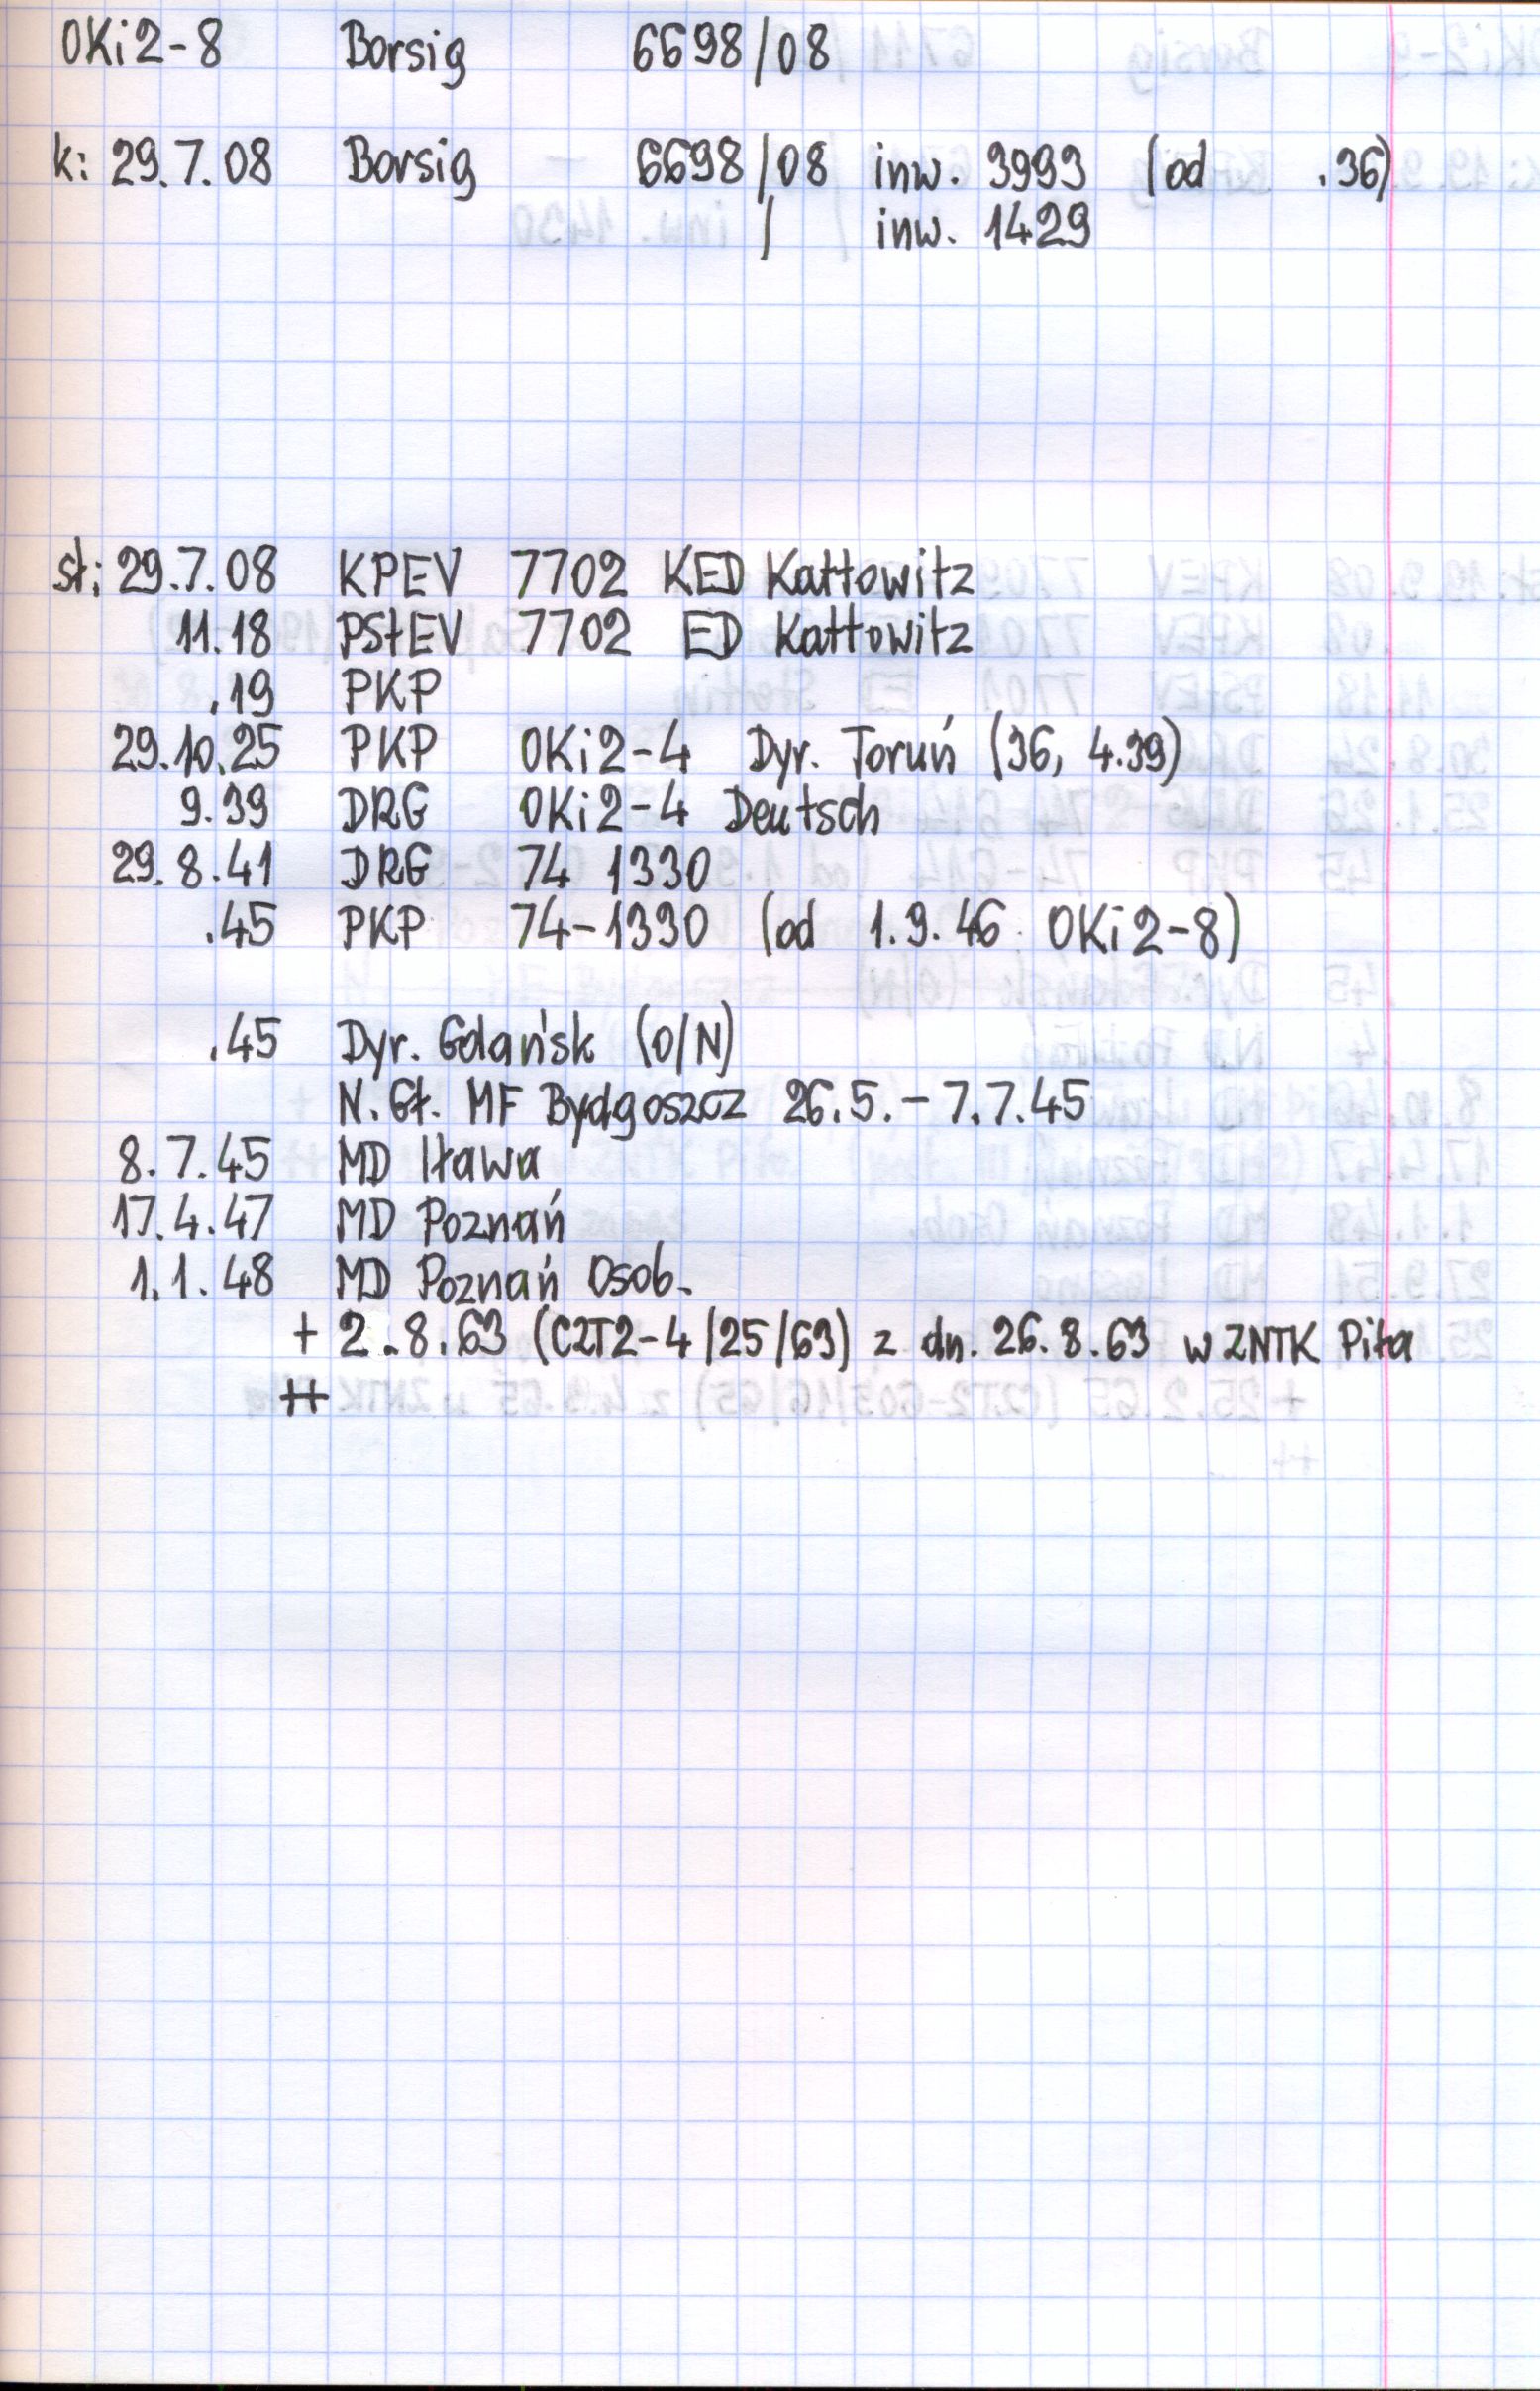 OKi2-8 Borsig 6698/08
k: 29.7.08 Borsig 6698/08 inw. 3993 (od .36)
/ inw. 1429
st: 29.7.08 KPEV 7702 KED Kattowitz
11.18 PStEV 7702 ED Kattowitz
.19 PKP
29.10.25 PKP OKi2-4 Dyr. Toruń (36, 4.39)
9.39 DRG OKi2-4 Deutsch
29.8.41 DRG 74 1330
.45 PKP 74-1330 (od 1.9.46 OKi2-8)
.45 Dyr. Gdańsk (O/N)
N. Gł. MF Bydgoszcz 26.5.-7.7.45
8.7.45 MD Iława
17.4.47 MD Poznań
1.1.48 MD Poznań Osob.
+ 2 .8.63 (CZT2-4/25/63) z dn. 26.8.63 w ZNTK Piła
++